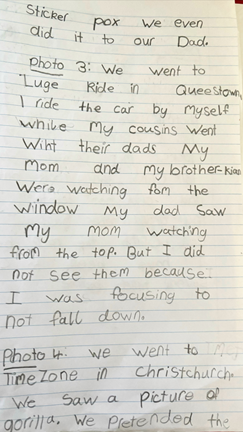 Sticker pox we even
did it to our Dad.
Photo 3: We went to
Luge Ride in Queestown,
I ride the car by myself
while my cousins went
Wiht their dads My
Mom and my brother-Kian
Were watching fom the
window My dad saw
My mom watching
from the top. But I did
not see them because.
I was focusing to
not fall down.
Photo 4: we went to
Time Zone in Christchurch.
We saw a picture of
gorilla. We pretended the